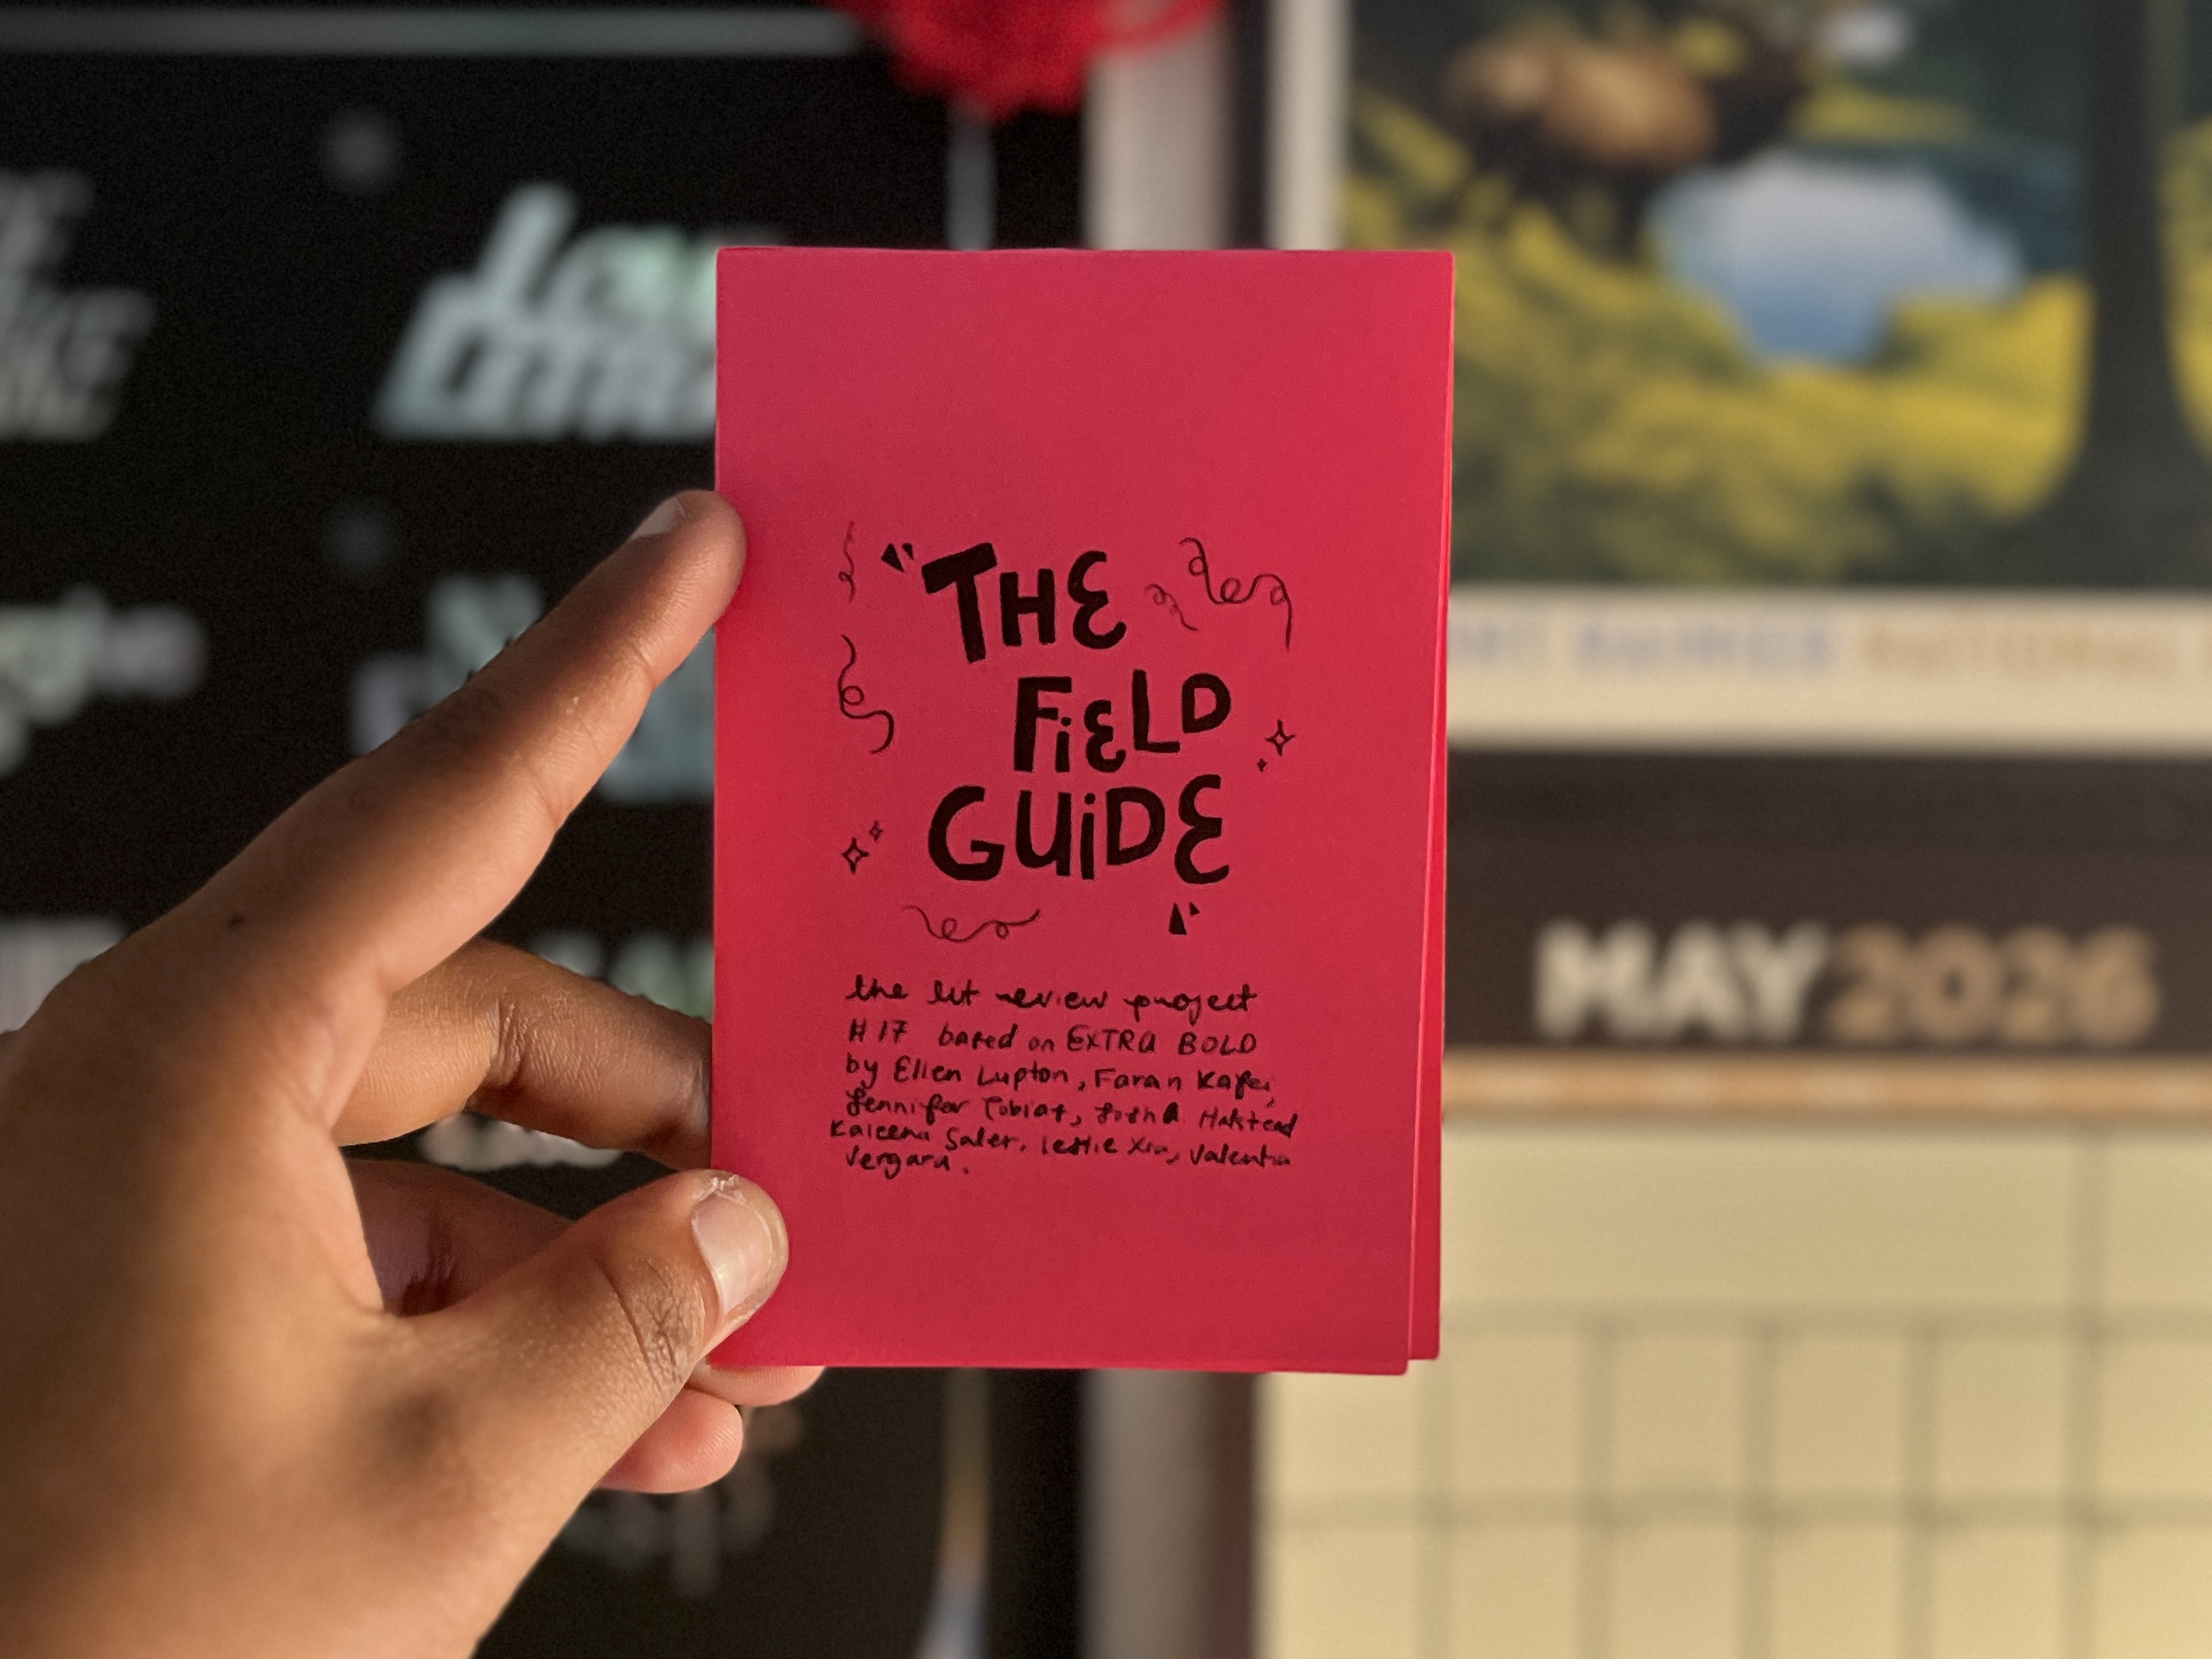 "THE
FiELD
GUiDE
"
the lit review project
#17 based on EXTRA BOLD
by Ellen Lupton, Farah Kafei,
Jennifer Tobias, Josh A. Halstead
Kaleena Sales, Leslie Xia, Valentina
Vergara.
MAY 2026